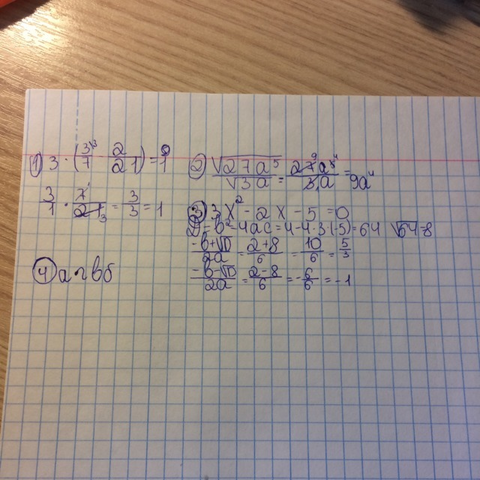 1) 3 · (3/7 2/21) = 1
3/1 · 7/21 = 3/3 = 1
4) а г в б
2) √27a⁵ / √3a = 27a⁵ / 3a = 9a⁴
3) 3x² - 2x - 5 = 0
D = b² - 4ac = 4 - 4 · 3 (-5) = 64 √64 = 8
-b+√D / 2a = 2+8 / 6 = 10/6 = 5/3
-b-√D / 2a = 2-8 / 6 = -6/6 = -1